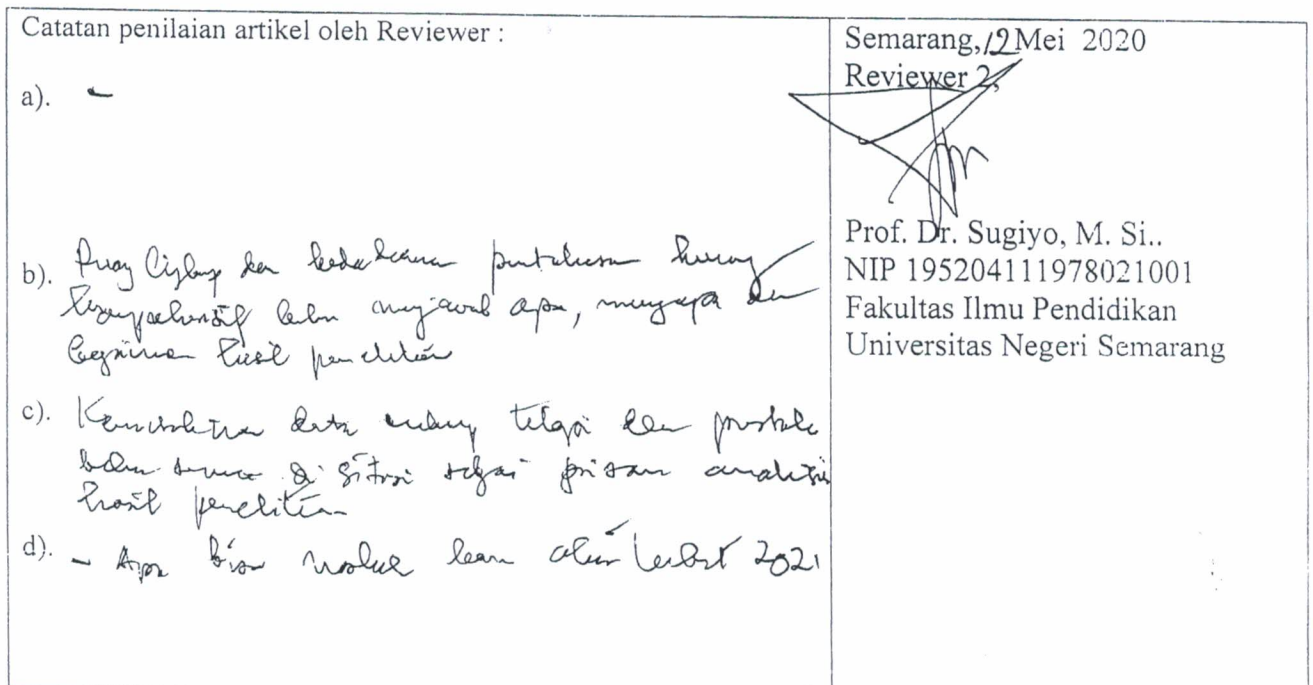 Catatan penilaian artikel oleh Reviewer :
a). -
b). Ruang lingkup dan kedalaman pembahasan kurang
komprehensif belum menjawab apa, mengapa dan
bagaimana hasil penelitian
c). data cukup dan pustaka
belum semua di sitasi sebagai pisau analisis
hasil penelitian
d). - Apa bisa 2021
Semarang, 12 Mei 2020
Reviewer 2,
Prof. Dr. Sugiyo, M. Si..
NIP 195204111978021001
Fakultas Ilmu Pendidikan
Universitas Negeri Semarang